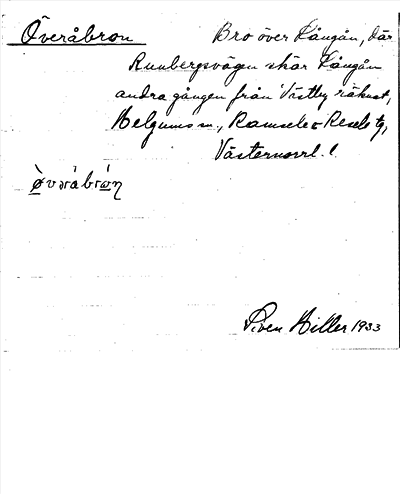 Överåbron
Bro över Långån, där
Runbergsvägen skär Långån
andra gången från Västby räknat,
Helgums sn, Ramsele o Resele tg,
Västernorrl. l
Sven Hiller 1933